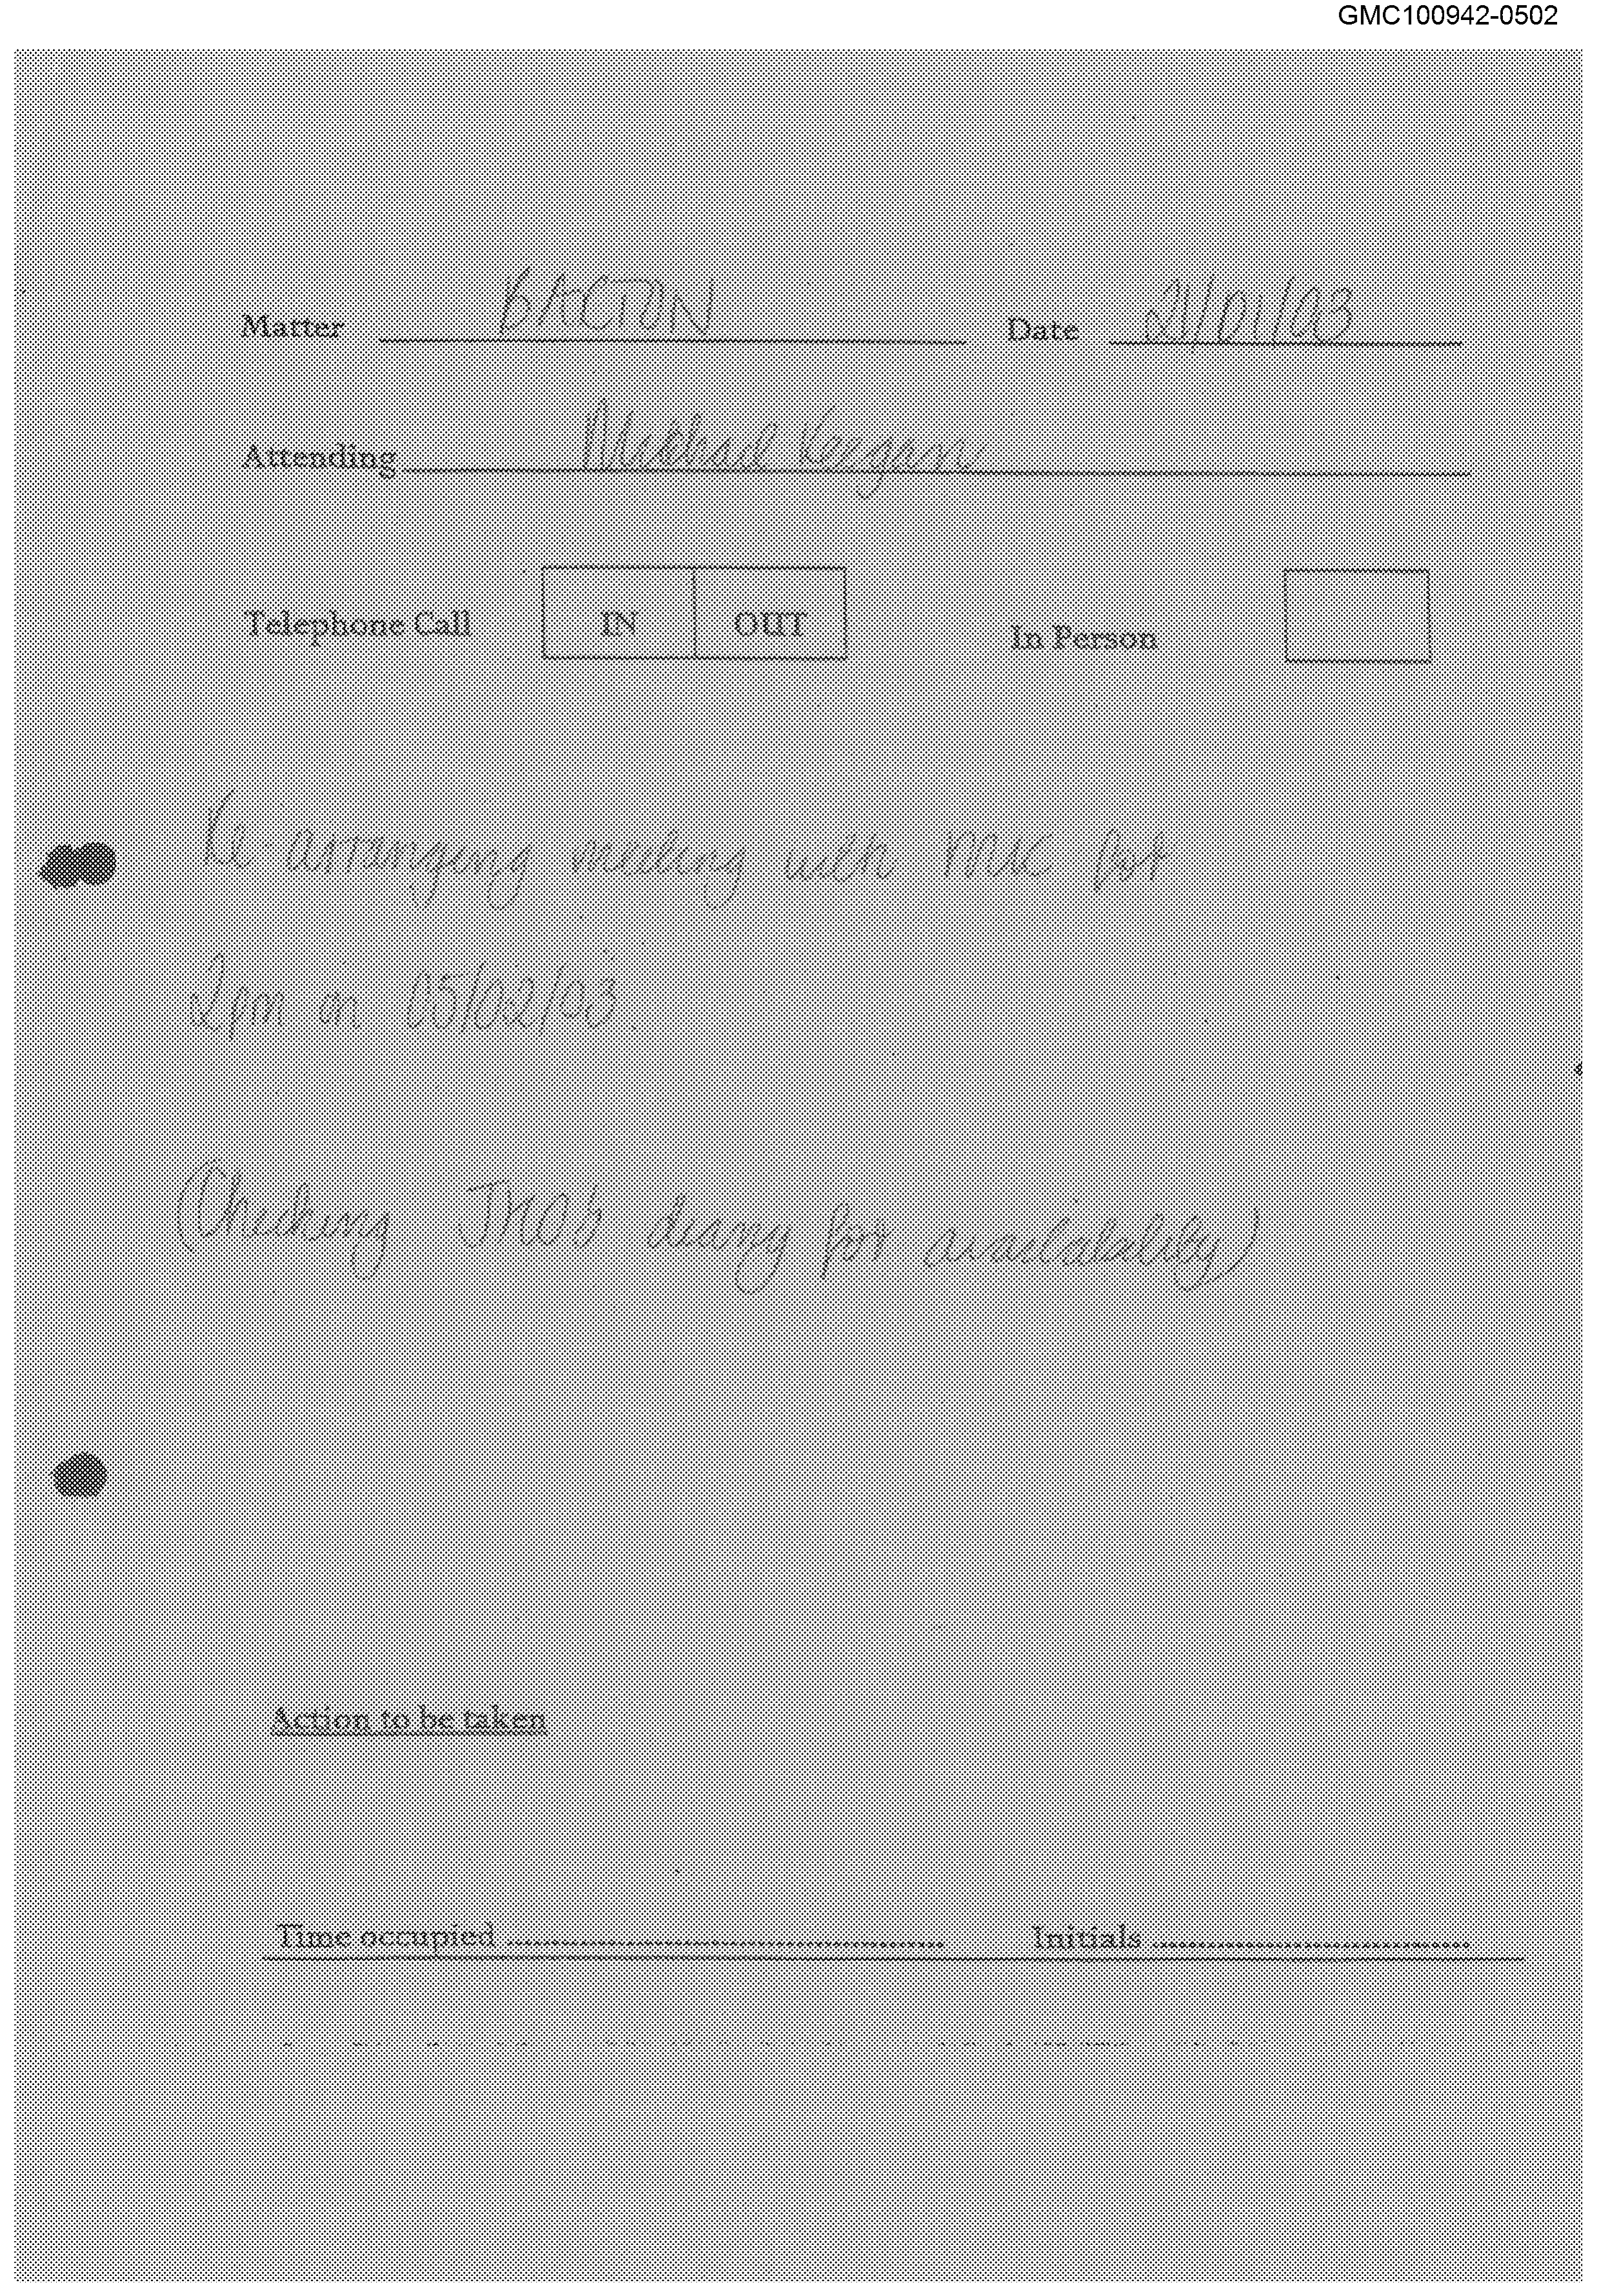 GMC100942-0502
Matter BACTON Date 21/01/03
Attending Michael Keegan
Telephone Call IN OUT In Person
Re arranging meeting with MK for
2pm on 05/02/03.
(Checking diary for availability)
Action to be taken
Time occupied Initials